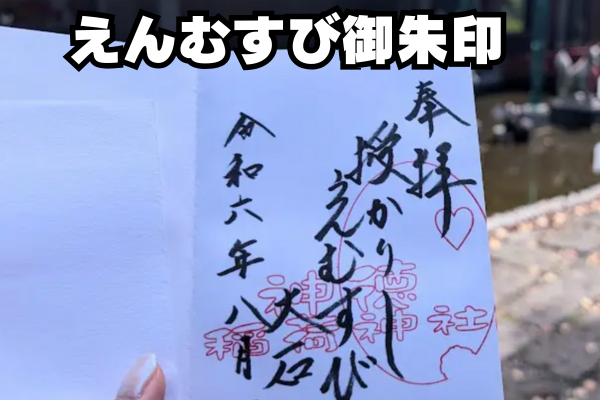 えんむすび御朱印
奉拝
授かりし
えむすび
大石
令和六年八月
神徳
稲荷神社